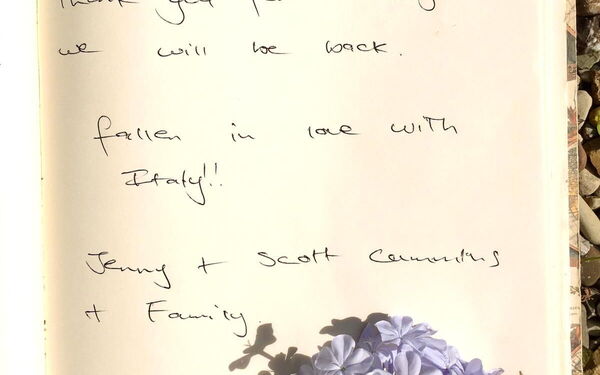 Thank you for
we will be back.
fallen in love with
Italy!!
Jenny + Scott Cummins
+ Family.